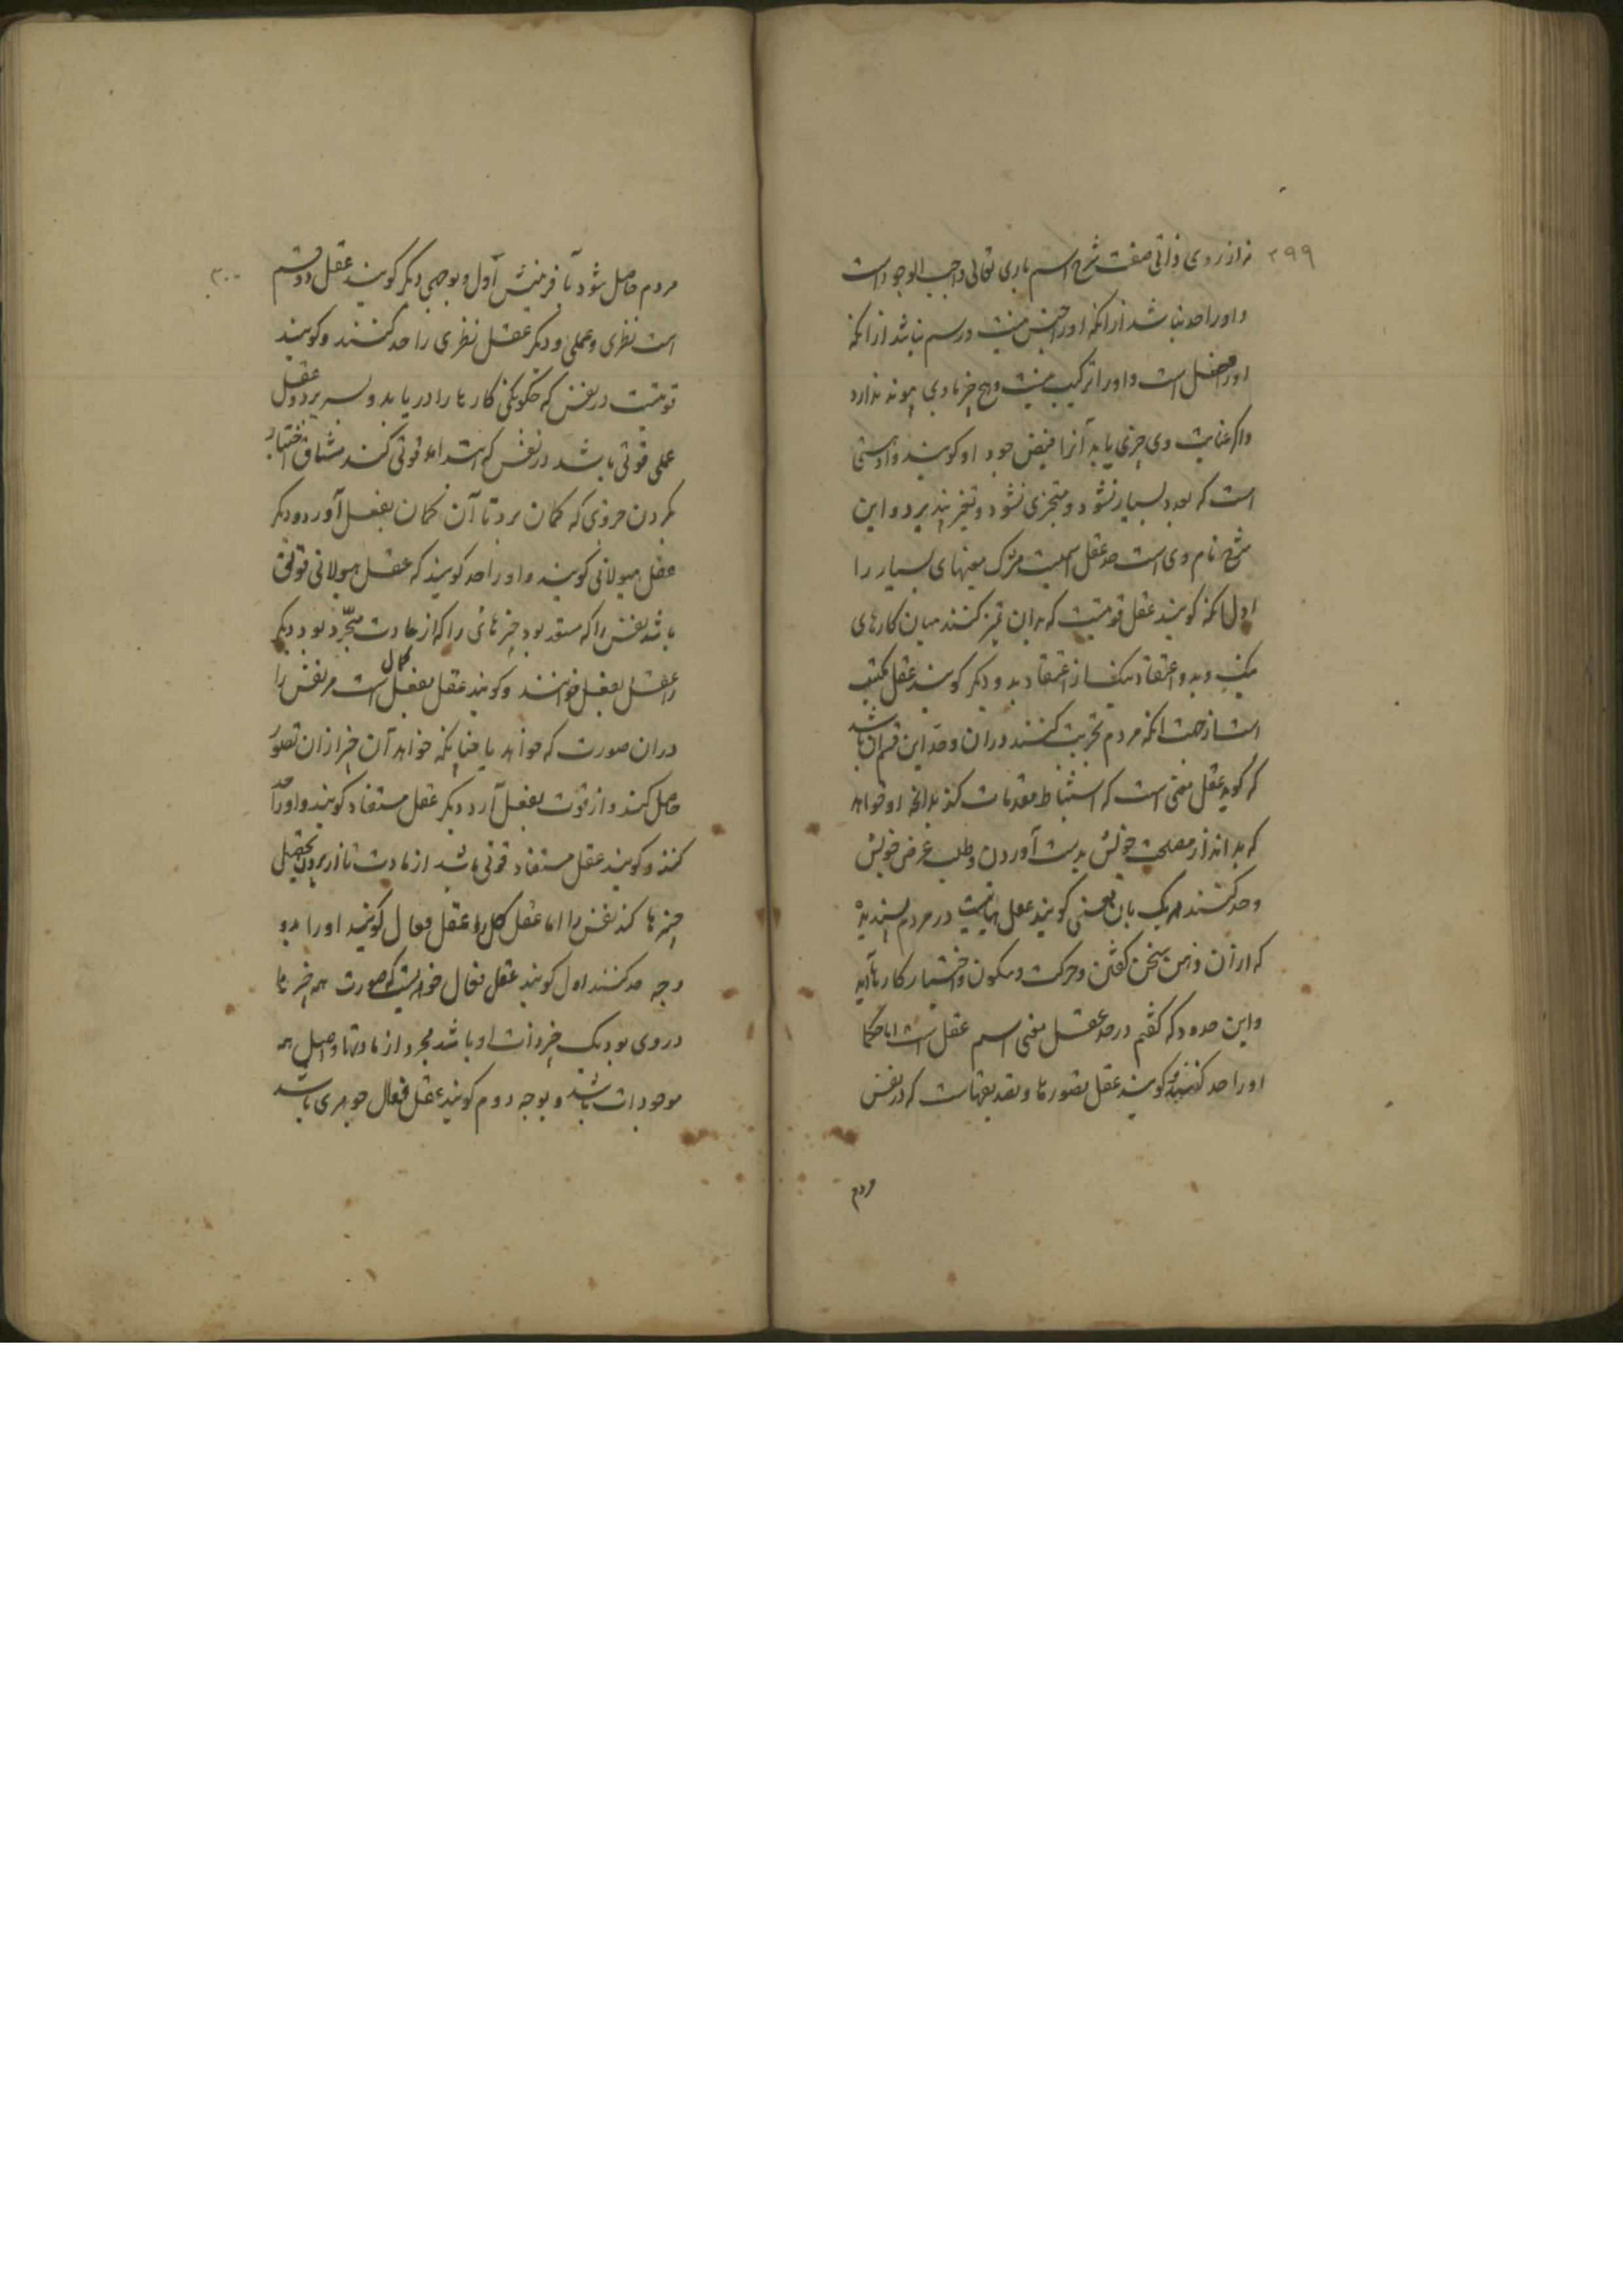 ۲۹۹
نه از روی ذاتی صفت شرح اسم باری تعالی واجب الوجود است
و اورا حد نباشد ازانکه اورا جنس نیست و رسم نباشد ازانکه
اورا فصل است و اورا ترکیب نیست و هیچ چیز با وی پیوند ندارد
و اگر عنایت وی چیزی یابد آنرا فیض جود او گویند و او
است که بعدد بسیار نشود و متجزی نشود و تغیر نپذیرد و این
شرح نام وی است حد عقل اسمیست مشترک معنیهای بسیار را
اول آنکه گویند عقل قوتیست که بدان تمیز کنند میان کارهای
نیک و بد و اعتقاد نیک از اعتقاد بد و دیگر گویند عقل مکتسب
است از جهت انکه مردم تجربت کنند دران و حد این قسم آن باشد
که گوید عقل معنی است که استنباط مقدمات کند بدانچه او خواهد
که بداند از مصلحت خویش بدست آوردن و طلب غرض خویش
و حد کنند هر یک بان معنی گویند عقل هیاتیست در مردم پسندیده
که ازان ذهن سخن گفتن و حرکت و سکون و اختیار کارها آید
و این حدود که گفتم در حد عقل معنی اسم عقل است اما حکما
اورا حد کنند و گویند عقل تصورها و تصدیقهاست که در نفس
مردم
۳۰۰
مردم حاصل شود بآفرینش اول و بوجهی دیگر گویند عقل دو قسم
است نظری و عملی و دیگر عقل نظری را حد کنند و گویند
قوتیست در نفس که چگونگی کارها را دریابد و بسر برد و عقل
عملی قوتی باشد در نفس که ابتداء قوتی کند مشتاق اختیار
کردن جزوی که گمان برد تا آن گمان بفعل آورد و دیگر
عقل هیولانی گویند و اورا حد گویند که عقل هیولانی قوتی
باشد نفس را که مستعد بود چیزهائی را که از مادت مجرد بود و دیگر
را عقل بفعل خوانند و گویند عقل بفعل کمال است مر نفس را
دران صورت که خواهد یا چنانکه خواهد آن چیز ازان تصور
حاصل کند و از قوت بفعل آرد دیگر عقل مستفاد گویند و اورا حد
کنند و گویند عقل مستفاد قوتی باشد از مادت تا از بیرون تحصیل
چیزها کند نفس را اما عقل کل را و عقل فعال گویند اورا بدو
وجه حد کنند اول گویند عقل فعال جوهریست که صورت همه چیزها
در وی بود یک چیز ذات او باشد مجرد از مادتها و اصل همه
موجودات باشد و بوجه دوم گویند عقل فعال جوهری باشد